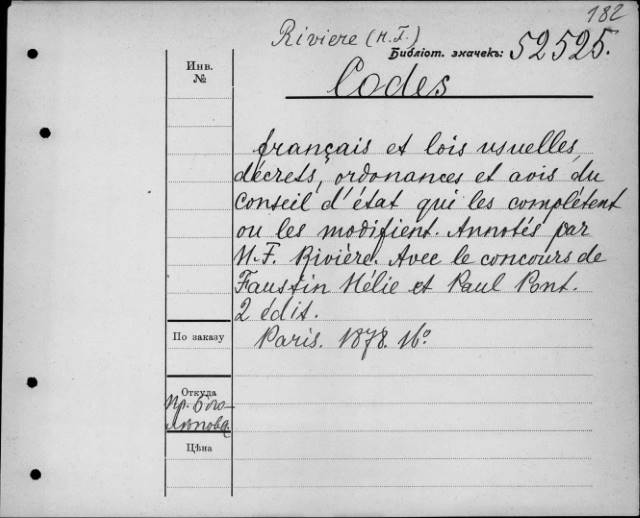 182
Riviere (H.F.)
Библіот. значекъ: 52525.
Инв. №
Codes
français et lois usuelles,
décrets, ordonances et avis du
Conseil d'état qui les complétent
ou les modifient. Annotés par
H.F. Rivière. Avec le concours de
Faustin Hélie et Paul Pont.
2 édit.
По заказу
Paris. 1878. 16°
Откуда
пр. Бого-
лѣпова
Цѣна